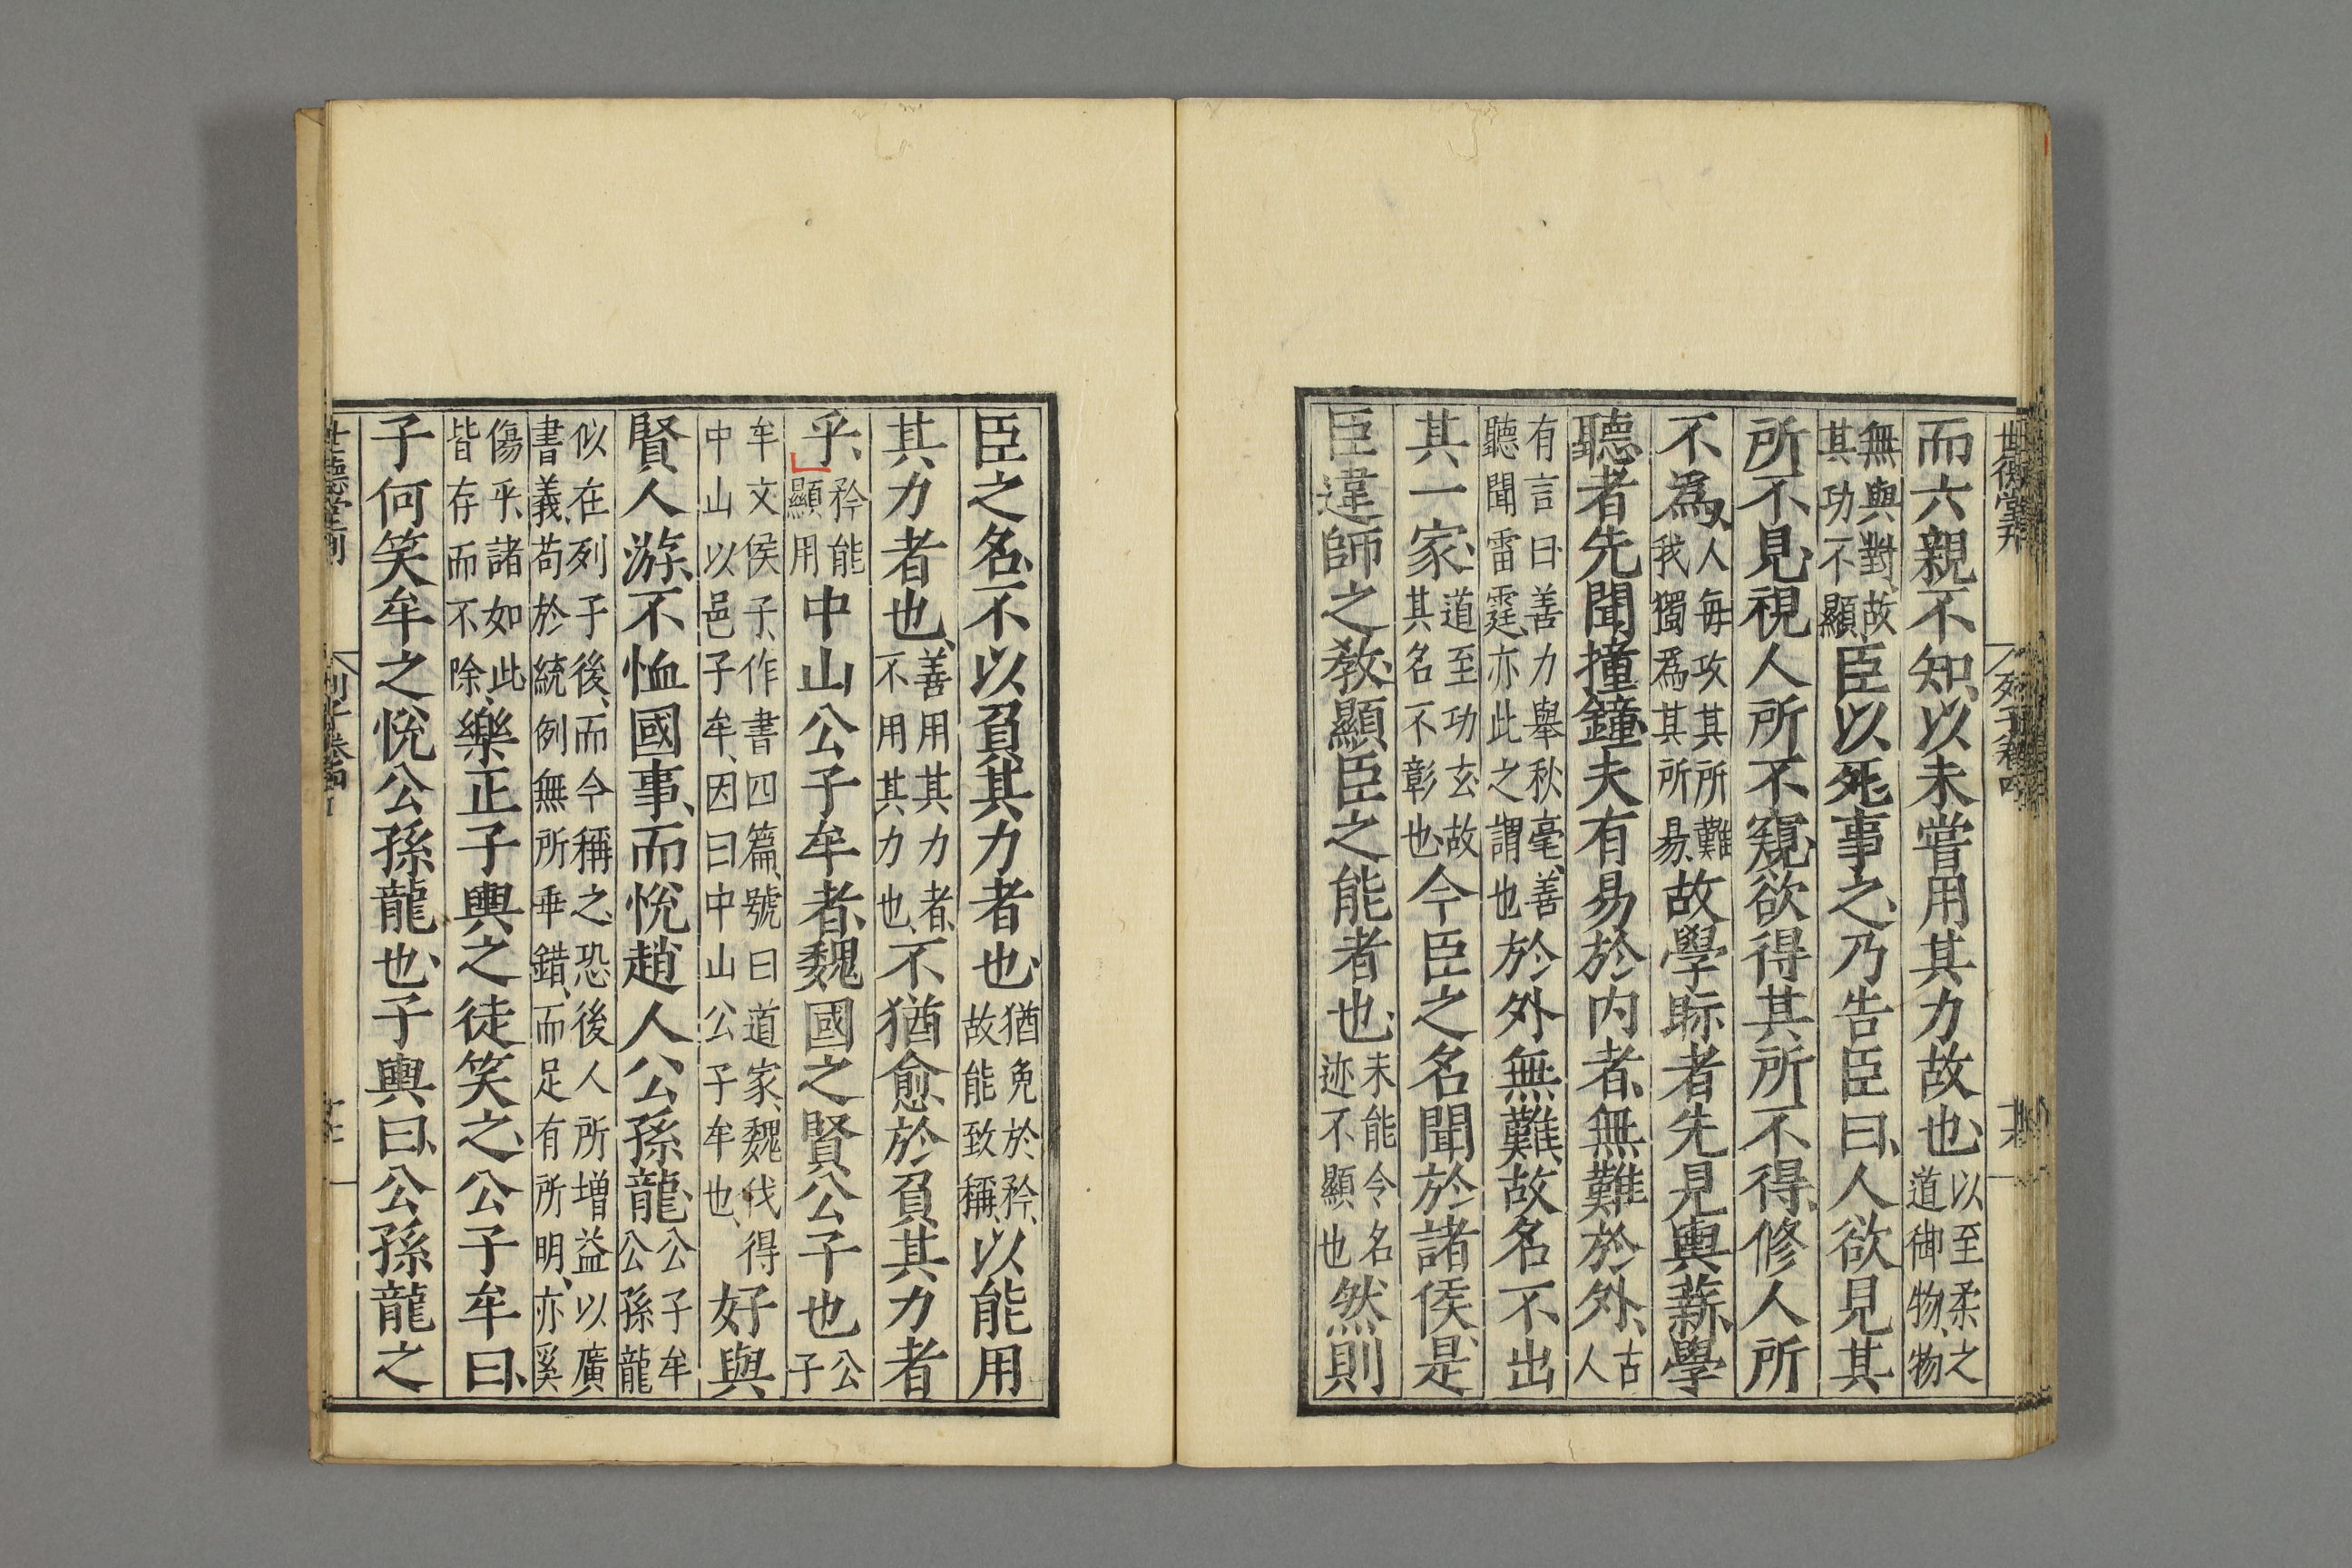 而六親不知、以未嘗用其力故也、以至柔之道御物、物
無與對、故其功不顯、臣以死事之、乃告臣曰、人欲見其
所不見、視人所不窺、欲得其所不得、修人所
不為、人每攻其所難我獨為其所易、故學眎者先見輿薪、學
聽者先聞撞鐘、夫有易於内者、無難於外、古人
有言曰善力舉秋毫、善聽聞雷霆、亦此之謂也於外無難、故名不出
其一家、道至功玄故其名不彰也、今臣之名聞於諸侯、是
臣違師之教、顯臣之能者也、未能令名迹不顯也然則
臣之名、不以負其力者也、猶免於矜、故能致稱、以能用
其力者也、善用其力者、不用其力也、不猶愈於負其力者
乎、矜能顯用中山公子牟者、魏國之賢公子也公子
牟文侯子、作書四篇、號曰道家、魏伐得中山以邑子牟、因曰中山公子牟也、好與
賢人游、不恤國事、而悅趙人公孫龍、公子牟公孫龍
似在列子後、而今稱之、恐後人所增益以廣書義、苟於統例無所乖錯、而足有所明、亦奚
傷乎、諸如此皆存而不除、樂正子輿之徒笑之、公子牟曰、
子何笑牟之悅公孫龍也、子輿曰、公孫龍之